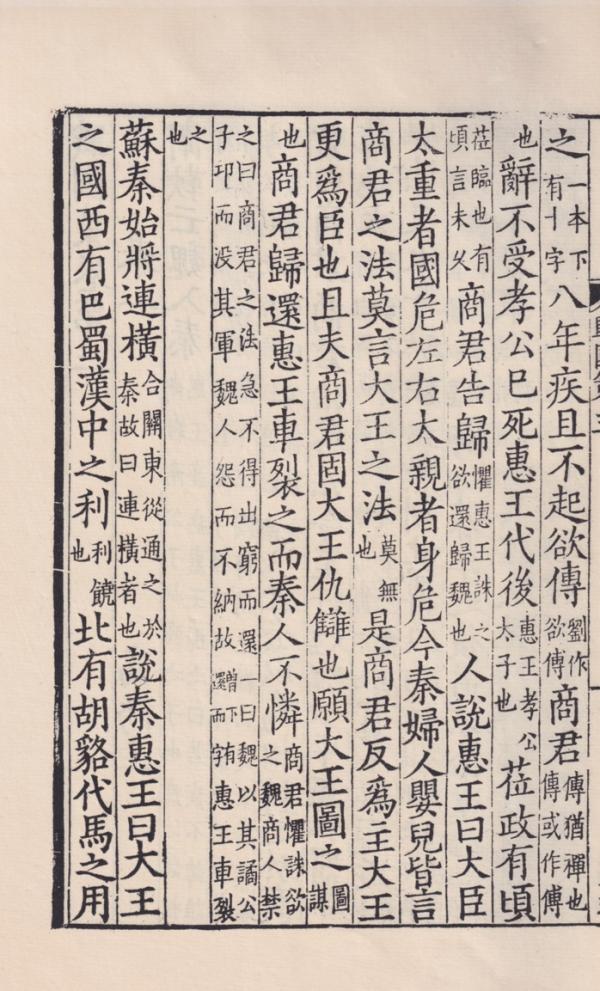 之一本下有十字八年疾且不起欲傳劉作欲傳商君傳猶禪也傳或作傅
也辭不受孝公已死惠王代後惠王孝公太子也莅政有頃
莅臨也有頃言未久商君告歸懼惠王誅之欲還歸魏也人說惠王曰大臣
太重者國危左右太親者身危今秦婦人嬰兒皆言
商君之法莫言大王之法莫無也是商君反爲主大王
更爲臣也且夫商君固大王仇讎也願大王圖之圖謀
也商君歸還惠王車裂之而秦人不憐商君懼誅欲之魏商人禁
之曰商君之法急不得出窮而還一曰魏以其譎公子卭而没其軍魏人怨而不納故曾下有還而字惠王車裂
之也
蘇秦始將連橫合關東從通之於秦故曰連橫者也說秦惠王曰大王
之國西有巴蜀漢中之利利饒也北有胡貉代馬之用